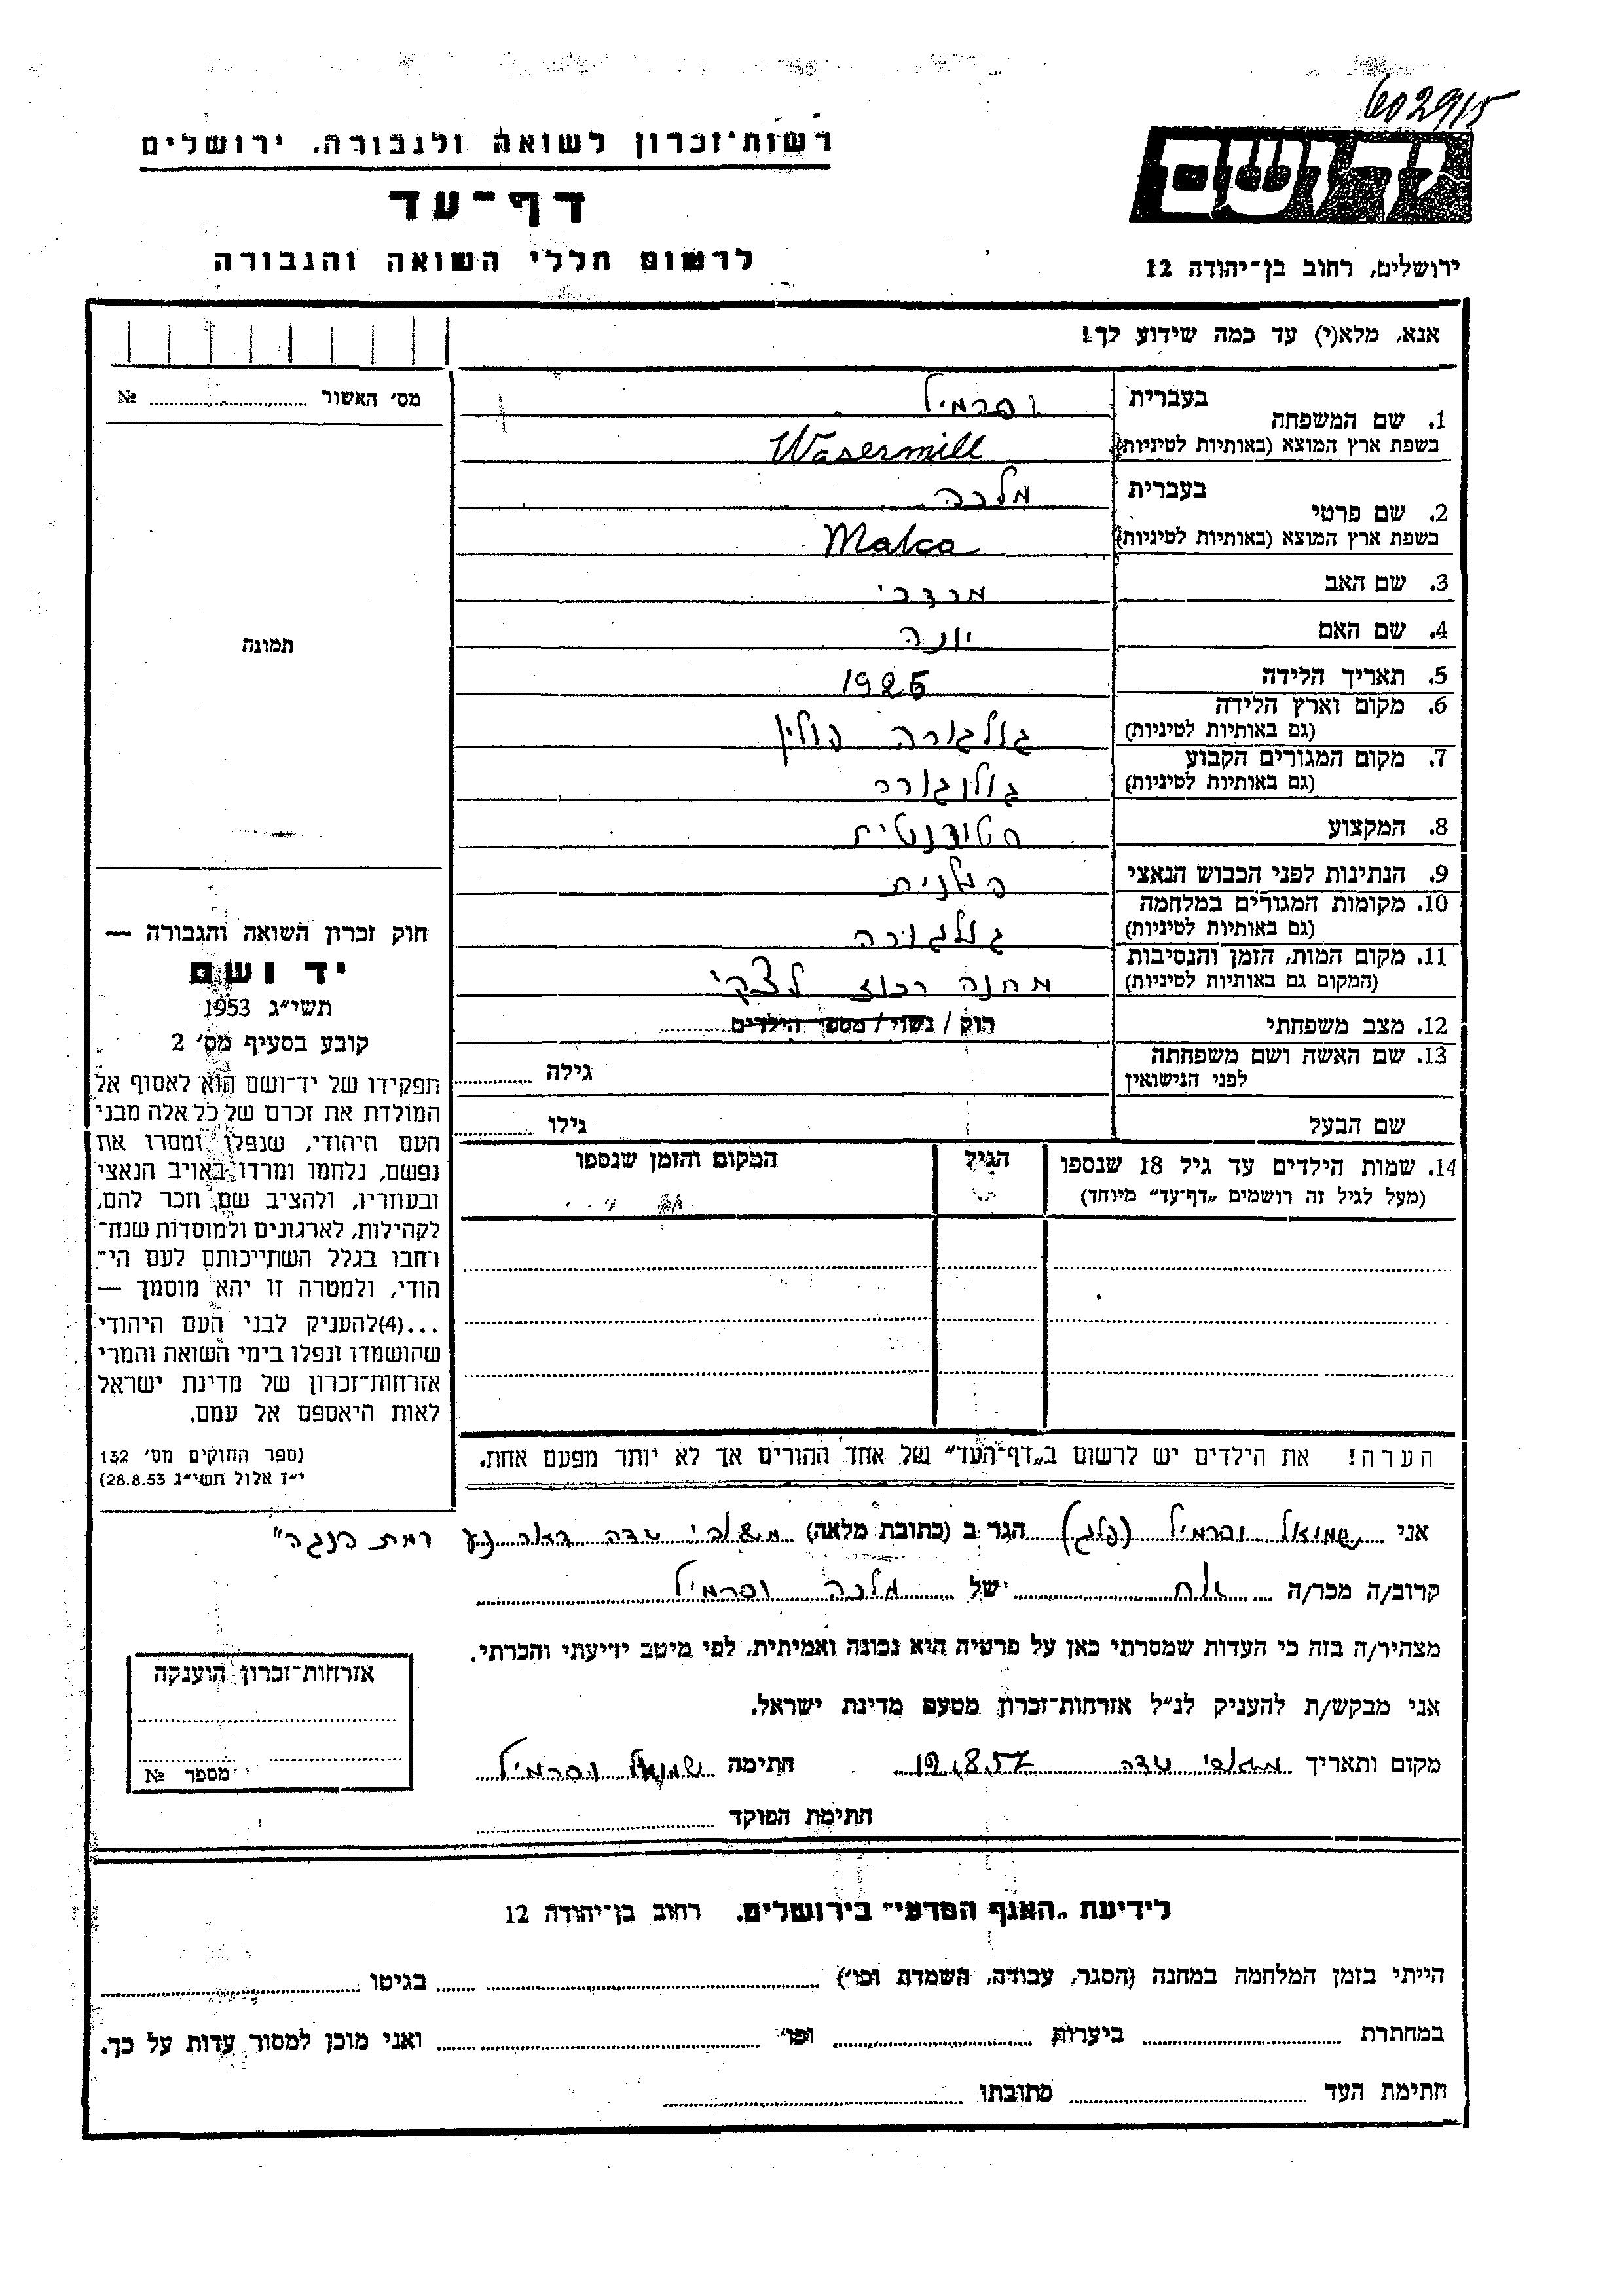 602915
רשות־זכרון לשואה ולגבורה, ירושלים
יד ושם
דף־עד
לרשום חללי השואה והגבורה
ירושלים, רחוב בן־יהודה 12
אנא, מלא(י) עד כמה שידוע לך!
מס׳ האשור № ........
1. שם המשפחה בעברית וסרמיל
בשפת ארץ המוצא (באותיות לטיניות) Wasermill
2. שם פרטי בעברית מלכה
בשפת ארץ המוצא (באותיות לטיניות) Malca
3. שם האב מרדכי
4. שם האם יונה
5. תאריך הלידה 1925
6. מקום וארץ הלידה
(גם באותיות לטיניות) גולגורה פולין
7. מקום המגורים הקבוע
(גם באותיות לטיניות)
8. המקצוע סטודנטית
9. הנתינות לפני הכבוש הנאצי פולנית
10. מקומות המגורים במלחמה
(גם באותיות לטיניות) גולגורה
11. מקום המות, הזמן והנסיבות
(המקום גם באותיות לטיניות) מחנה רכוז לצקי
12. מצב משפחתי רוק / נשוי / מספר הילדים ........
13. שם האשה ושם משפחתה
לפני הנישואין גילה ........
שם הבעל גילו ........
14. שמות הילדים עד גיל 18 שנספו
(מעל לגיל זה רושמים „דף־עד” מיוחד)
הגיל
המקום והזמן שנספו
תמונה
חוק זכרון השואה והגבורה —
יד ושם
תשי״ג 1953
קובע בסעיף מס׳ 2
תפקידו של יד־ושם הוא לאסוף אל
המולדת את זכרם של כל אלה מבני
העם היהודי, שנפלו ומסרו את
נפשם, נלחמו ומרדו באויב הנאצי
ובעוזריו, ולהציב שם וזכר להם,
לקהילות, לארגונים ולמוסדות שנח־
רבו בגלל השתייכותם לעם הי־
הודי, ולמטרה זו יהא מוסמך —
...(4)להעניק לבני העם היהודי
שהושמדו ונפלו בימי השואה והמרי
אזרחות־זכרון של מדינת ישראל
לאות היאספם אל עמם.
(ספר החוקים מס׳ 132
י״ז אלול תשי״ג 28.8.53)
הערה! את הילדים יש לרשום ב„דף־העד” של אחד ההורים אך לא יותר מפעם אחת.
אני שמואל וסרמיל (פלג) הגר ב (כתובת מלאה) משאבי שדה דאר נע רמת הנגב"
קרוב/ה מכר/ה אח של מלכה וסרמיל
מצהיר/ה בזה כי העדות שמסרתי כאן על פרטיה היא נכונה ואמיתית, לפי מיטב ידיעתי והכרתי.
אני מבקש/ת להעניק לנ״ל אזרחות־זכרון מטעם מדינת ישראל.
מקום ותאריך משאבי שדה 19.8.57 חתימה שמואל וסרמיל
חתימת הפוקד ........
אזרחות־זכרון הוענקה
מספר №
לידיעת „האגף המדעי” בירושלים, רחוב בן־יהודה 12
הייתי בזמן המלחמה במחנה (הסגר, עבודה, השמדה וכו׳) ........ בגיטו ........
במחתרת ........ ביערות ........ וכו׳ ........ ואני מוכן למסור עדות על כך.
חתימת העד ........ כתובתו ........